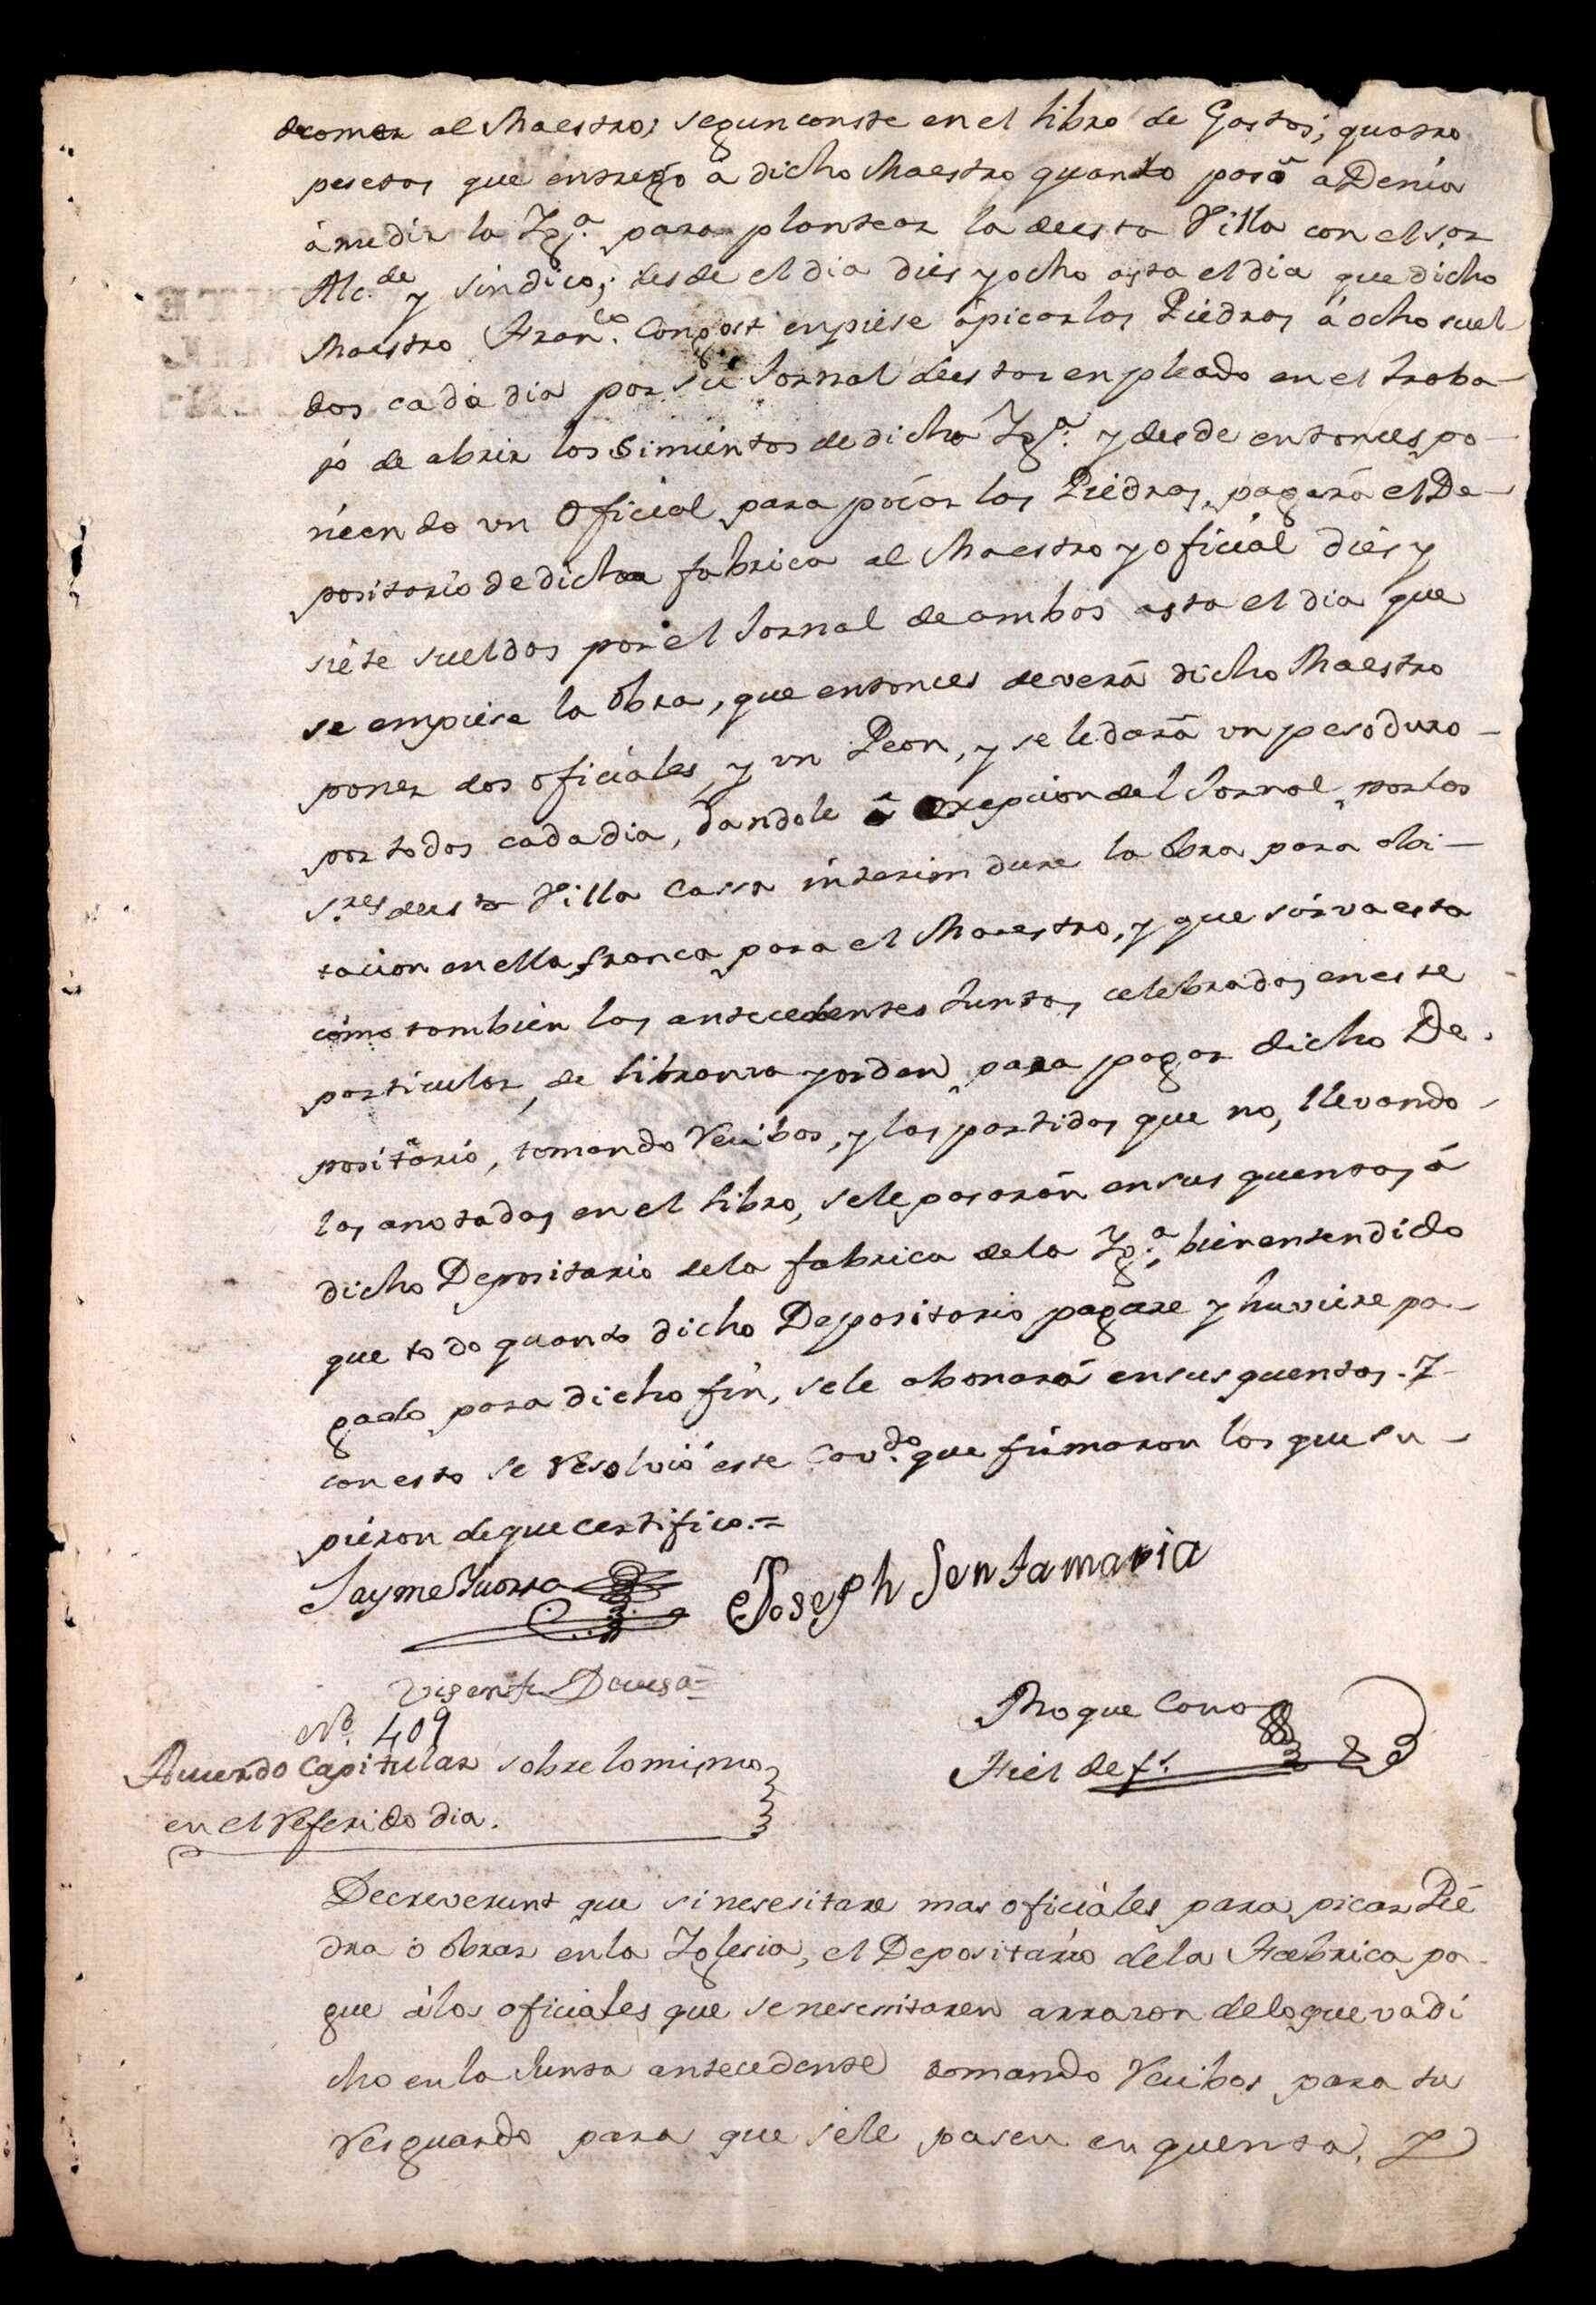 de comer al Maestro; segun conste en el libro de Gastos; quatro
pesetas que entregó â dicho Maestro quando pasô a Denia
â medir la Ygª. para plantear la de esta Villa con el sor
Alc.de y sindico; desde el dia dies y ocho asta el dia que dicho
Maestro Fran.co Congost enpiese ápicar las Piedras â ocho suel-
dos cada dia por su Jornal de estar enpleado en el traba-
jo de abrir los Simientos de dicha Ygª. y desde entonces po-
niendo un Oficial para picar las Piedras, pagará el De-
positario de dicha fabrica al Maestro y oficial dies y
siete sueldos por el Jornal de ambos asta el dia que
se empiese la obra, que entonces deverâ dicho Maestro
poner dos oficiales, y un Peon, y se le darâ un peso duro-
por todos cada dia, dandole â exepcion del Jornal por los
S.res de esta Villa Cassa interim dure la obra para abi-
tacion en ella franca para el Maestro, y que sirva esta
cómo tambien las antecedentes Juntas celebradas en este
particular, de libransa y orden para pagar dicho De-
positario, tomando Recibos, y las partidas que no, llevando-
las anotadas en el libro, se le pasarán en sus quentas á
dicho Depositario de la fabrica de la Ygª. bien entendido
que todo quanto dicho Depositario pagare y huviere pa-
gado para dicho fin, se le abonará en sus quentas. Y
con esto se Resolvió este Cav.do que firmaron los que su-
pieron de que certifico.=
Jayme Yvorra
Joseph Sentamaria
Visente Devesa
Roque Cano
Fiel de f.s
No. 409
Acuerdo Capitular sobre lo mismo
en el Referido dia.
Decreverunt que si nesesitare mas oficiales para picar Pié
dra ó obrar en la Yglesia, el Depositario de la Fabrica pa-
gue álos oficiales que se nesesitaren arrazon de lo que va di
cho en la Junta antecedente tomando Recibos para su
Resguardo para que se le pasen en quenta. Y